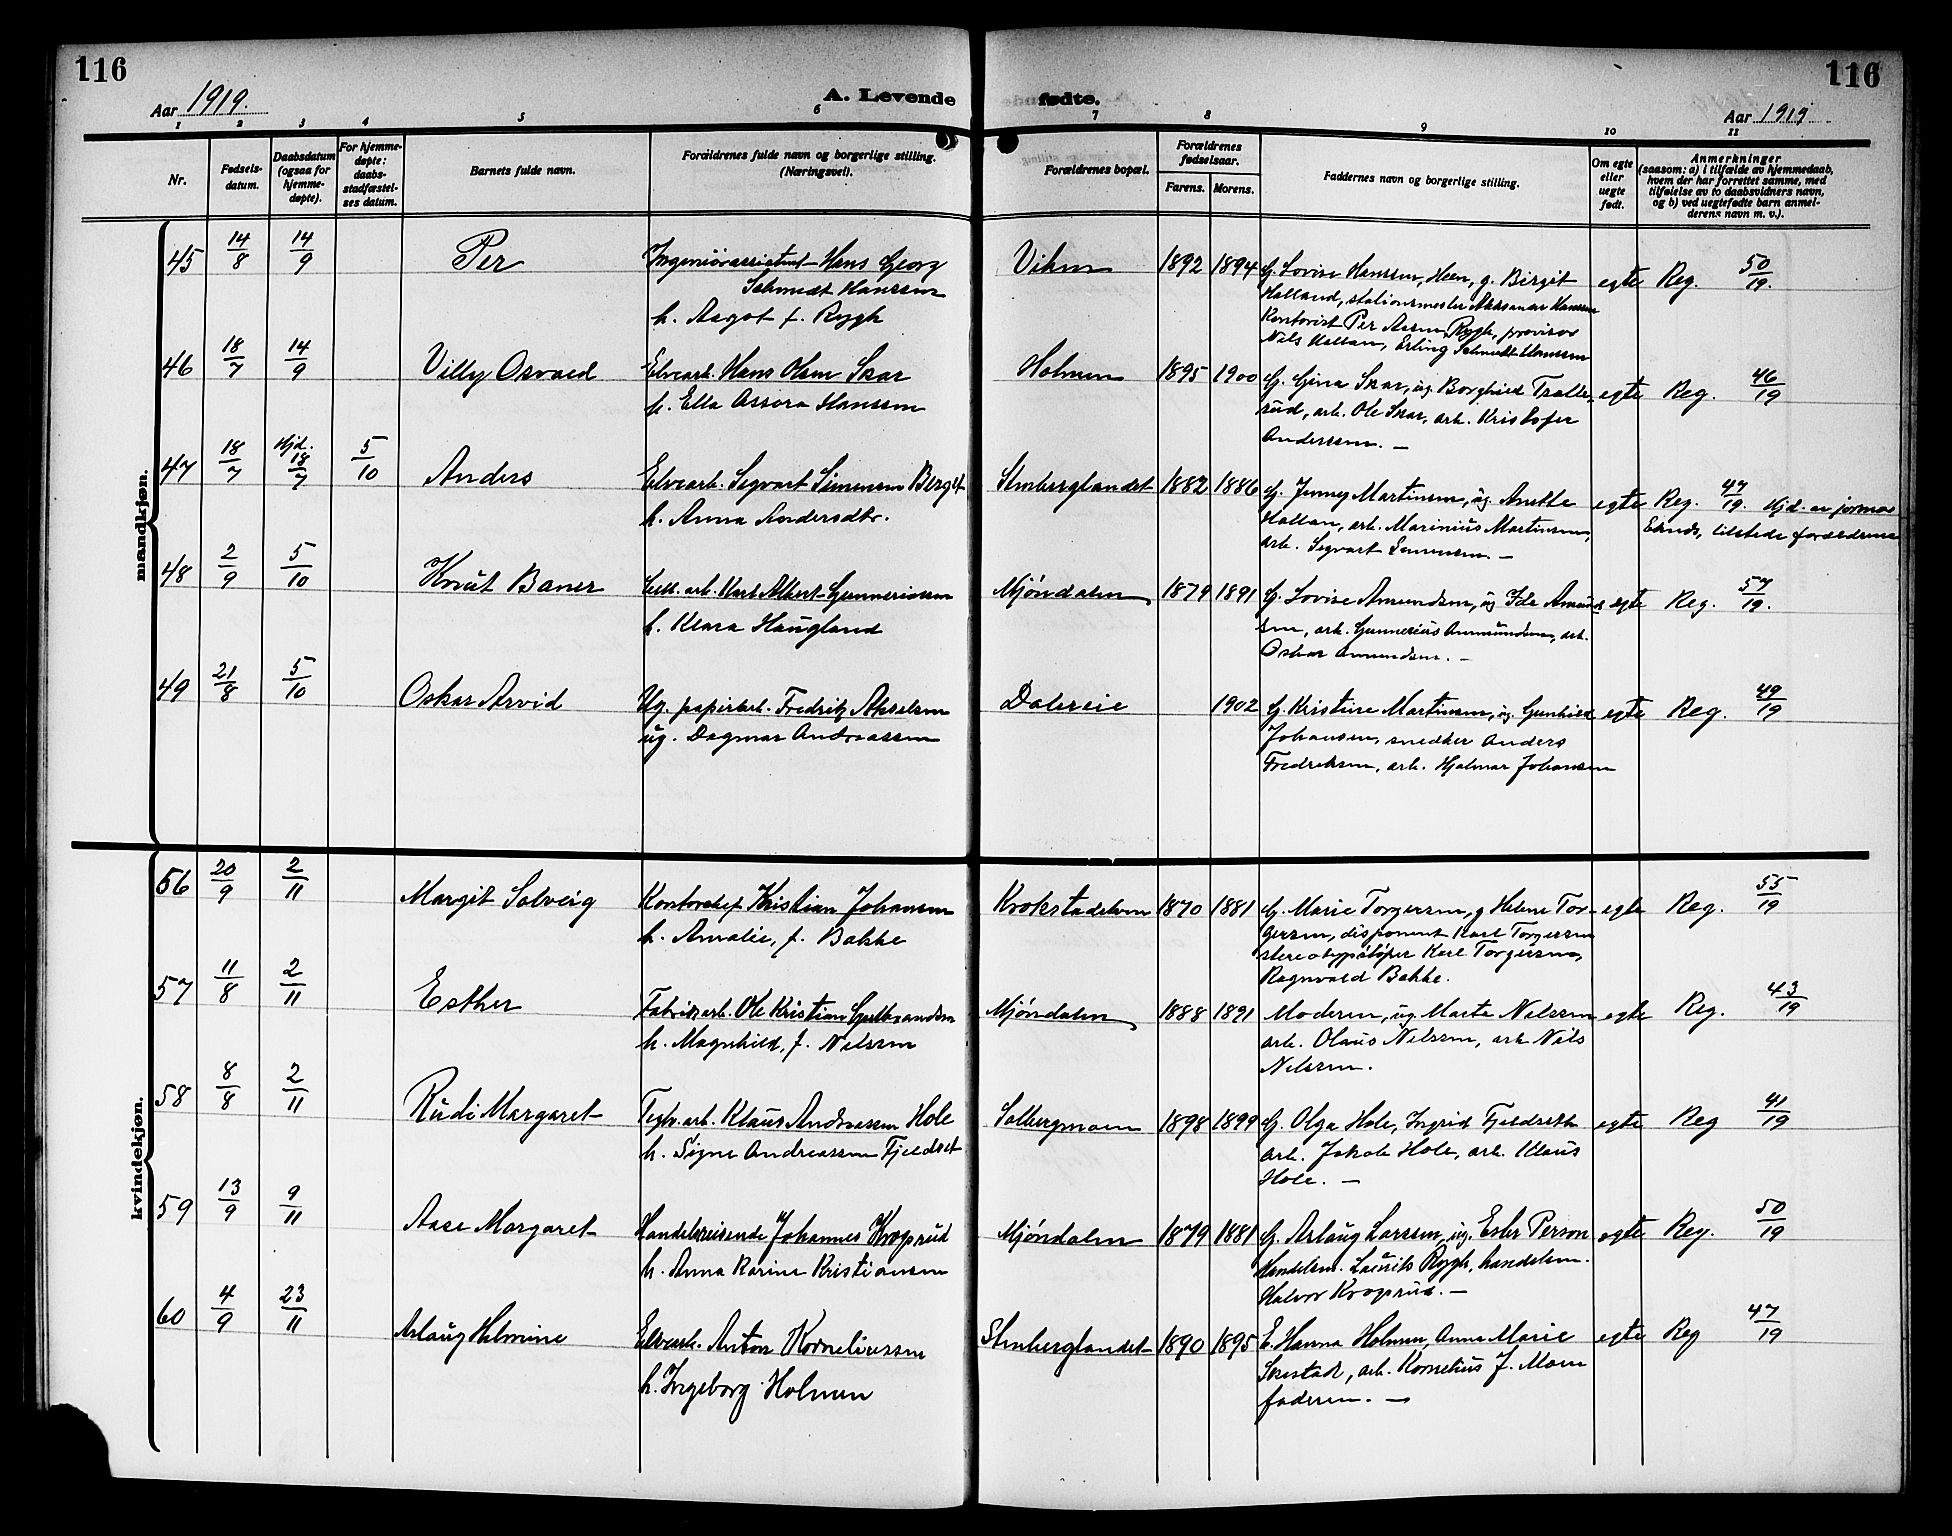 116
Aar 1919.
A. Levende
1 2 3 4 5 6
Nr.
Fødsels-
datum.
Daabsdatum
(ogsaa for
hjemme-
døpte).
For hjemme-
døpte:
daabs-
stadfæstel-
ses datum.
Barnets fulde navn.
Forældrenes fulde navn og borgerlige stilling.
(Næringsvei).
116
fødte.
Aar 1919
7 8 9 10 11
Forældrenes bopæl.
Forældrenes
fødselsaar.
Farens. Morens.
Faddernes navn og borgerlige stilling.
Om egte
eller
uegte
født.
Anmerkninger
(saasom: a) i tilfælde av hjemmedaab,
hvem der har forrettet samme, med
tilføielse av to daabsvidners navn,
og b) ved uegtefødte barn anmel-
derens navn m. v.).
mandkjøn.
45 14/8 14/9 Per
Ingeniørassistent Hans Georg
Schmedt Hanssen
h. Aagot f. Rygh
Viken 1892 1894
G. Lovise Hanssen, Heen, g. Birgit
Halland, stationsmester Hanssen
Kontorist Per Rygh, provisor
Nils Hallan, Erling Schmedt Hanssen
egte Reg. 50/19.
46 18/7 14/9 Villy Osvald
Elvearb. Hans Olsen Skar
h. Ella Assora Hanssen
Holmen 1895 1900
G. Gina Skar, ug. Borghild Tralle-
rud, arb. Ole Skar, arb. Kristofer
Anderssen. —
egte Reg. 46/19
47 18/7 Hjd. 18/7 5/10 Anders
Elvearb. Sigvart Simensen Berget
h. Anna Andersdtr.
Stenberglandet 1882 1886
G. Jenny Martinsen, ug. Anette
Hallan, arb. Marinius Martinsen,
arb. Sigvart Simensen. —
egte Reg. 47/19. Hjd. av jormor
tilstede forældrene
48 2/9 5/10 Knut Baner
Cell. arb. Karl Albert Gunneriussen
h. Klara Haugland
Mjøndalen 1879 1891
G. Lovise Amundsen, ug Ida Amund-
sen, arb. Gunnerius Ammundsen, arb.
Oskar Amundsen. —
egte Reg. 57/19.
49 21/8 5/10 Oskar Arvid
Ug. papirarb. Fredrik Akselsen
ug. Dagmar Andreassen
Dalereie 1902
G. Kristine Martinsen, ug. Gunhild
Johansen, snedker Anders
Fredriksen, arb. Hjalmar Johansen
egte Reg. 49/19
kvindekjøn.
56 20/9 2/11 Margit Solveig
Kontorchef Kristian Johansen
h. Amalie, f. Bakke
Krokstadelven 1870 1881
G. Marie Torgersen, g Helene Tor-
gersen, disponent Karl Torgersen
stereotypstøper Karl Torgersen,
Ragnvald Bakke.
egte Reg. 55/19
57 11/8 2/11 Esther
Fabrikarb. Ole Kristian Gulbrandsen
h. Magnhild, f. Nilssen
Mjøndalen 1888 1891
Moderen, ug. Marta Nilssen
arb. Olaus Nilssen, arb Nils
Nilssen.
egte Reg. 43/19
58 8/8 2/11 Rudi Margaret
Teglv. arb. Klaus Andreassen Hole
h. Signe Andreassen Fjeldset
Solbergmoen 1898 1899
G. Olga Hole, Ingrid Fjeldseth
arb. Jakob Hole, arb. Klaus
Hole. —
egte Reg 41/19
59 13/9 9/11 Aase Margaret
Handelsreisende Johannes Kroprud
h. Anna Karine Kristiansen
Mjøndalen 1879 1881
G. Aslaug Larssen, ug. Ester Person
Handelsm. Laurits Rygh, handelsm.
Halvor Kroprud. —
egte Reg. 50/19
60 4/9 23/11 Aslaug Helmine
Elvearb. Anton Korneliussen
h. Ingeborg Holmen
Stenberglandet 1890 1895
E. Hanna Holmen, Anna Marie
arb. Kornelius J. Moen
faderen. —
egte Reg 47/19